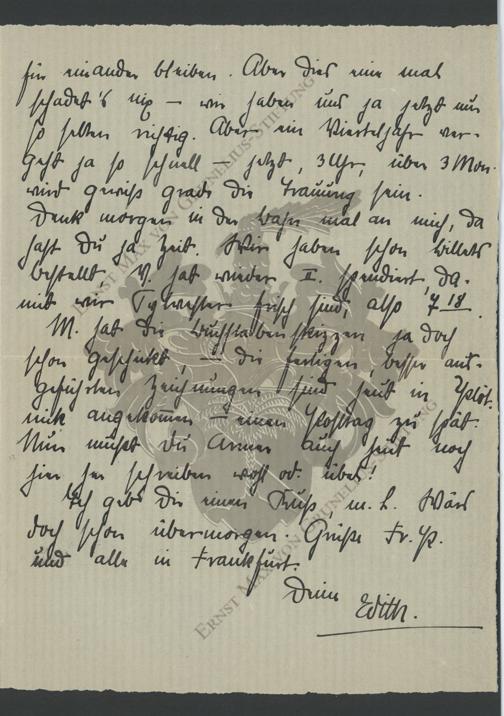 für einander bleiben. Aber dies eine mal
schadet's nix – wir haben uns ja jetzt nur
so selten richtig. Aber ein Vierteljahr ver-
geht ja so schnell – jetzt, 3 Uhr, über 3 Mon.
wird gewiß grade die Trauung sein.
Denk morgen in der Bahn mal an mich, da
hast Du ja Zeit. Wir haben schon Billets
bestellt V. hat wieder II. spendiert, da-
mit wir Sylvester frisch sind, also 7 18.
M. hat die Buchstabenskizzen ja doch
schon geschickt, – die fertigen, besser aus-
geführten Zeichnungen sind heut in
angekommen – einen Posttag zu spät.
Nun mußt Du Armer auch heut noch
hier her schreiben wohl od. übel!
Ich geb Dir einen Kuß, m. L. Wärs
doch schon übermorgen. Grüße Fr. P.
und alle in Frankfurt.
Deine Edith.
ERNST MAX VON GRUNELIUS-STIFTUNG
ERNST MAX VON GRUNELIUS-STIFTUNG